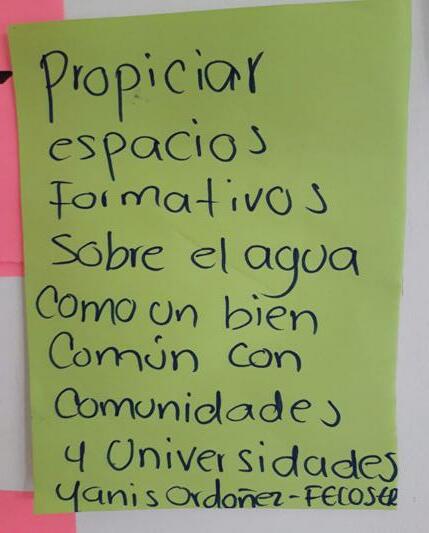 Propiciar
espacios
Formativos
Sobre el agua
como un bien
Común con
Comunidades
y Universidades
Yanis Ordoñez - FECOSER